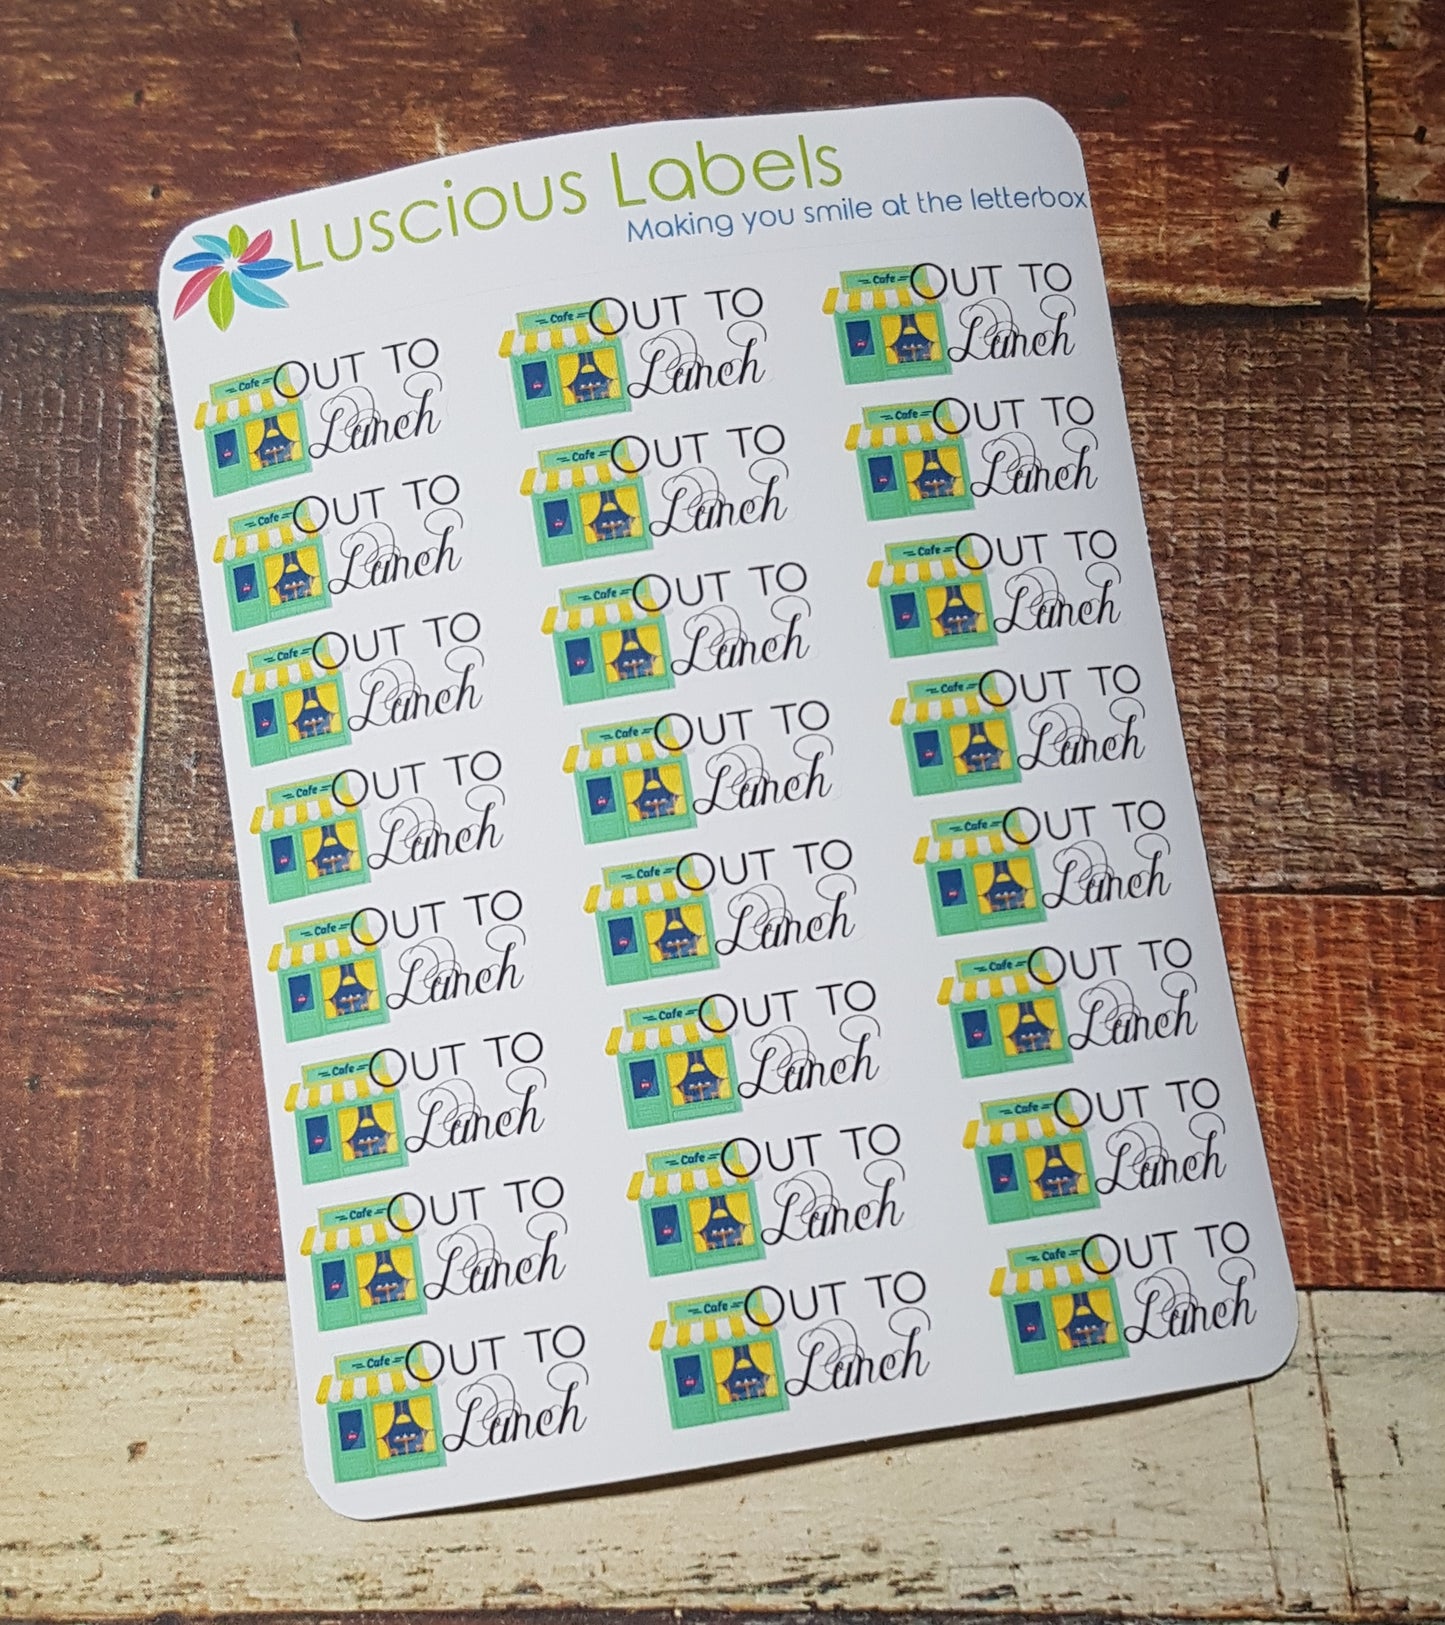 Luscious Labels
Making you smile at the letterbox
Cafe OUT TO
Lunch
Cafe OUT TO
Lunch
Cafe OUT TO
Lunch
Cafe OUT TO
Lunch
Cafe OUT TO
Lunch
Cafe OUT TO
Lunch
Cafe OUT TO
Lunch
Cafe OUT TO
Lunch
Cafe OUT TO
Lunch
Cafe OUT TO
Lunch
Cafe OUT TO
Lunch
Cafe OUT TO
Lunch
Cafe OUT TO
Lunch
Cafe OUT TO
Lunch
Cafe OUT TO
Lunch
Cafe OUT TO
Lunch
Cafe OUT TO
Lunch
Cafe OUT TO
Lunch
Cafe OUT TO
Lunch
Cafe OUT TO
Lunch
Cafe OUT TO
Lunch
Cafe OUT TO
Lunch
Cafe OUT TO
Lunch
Cafe OUT TO
Lunch